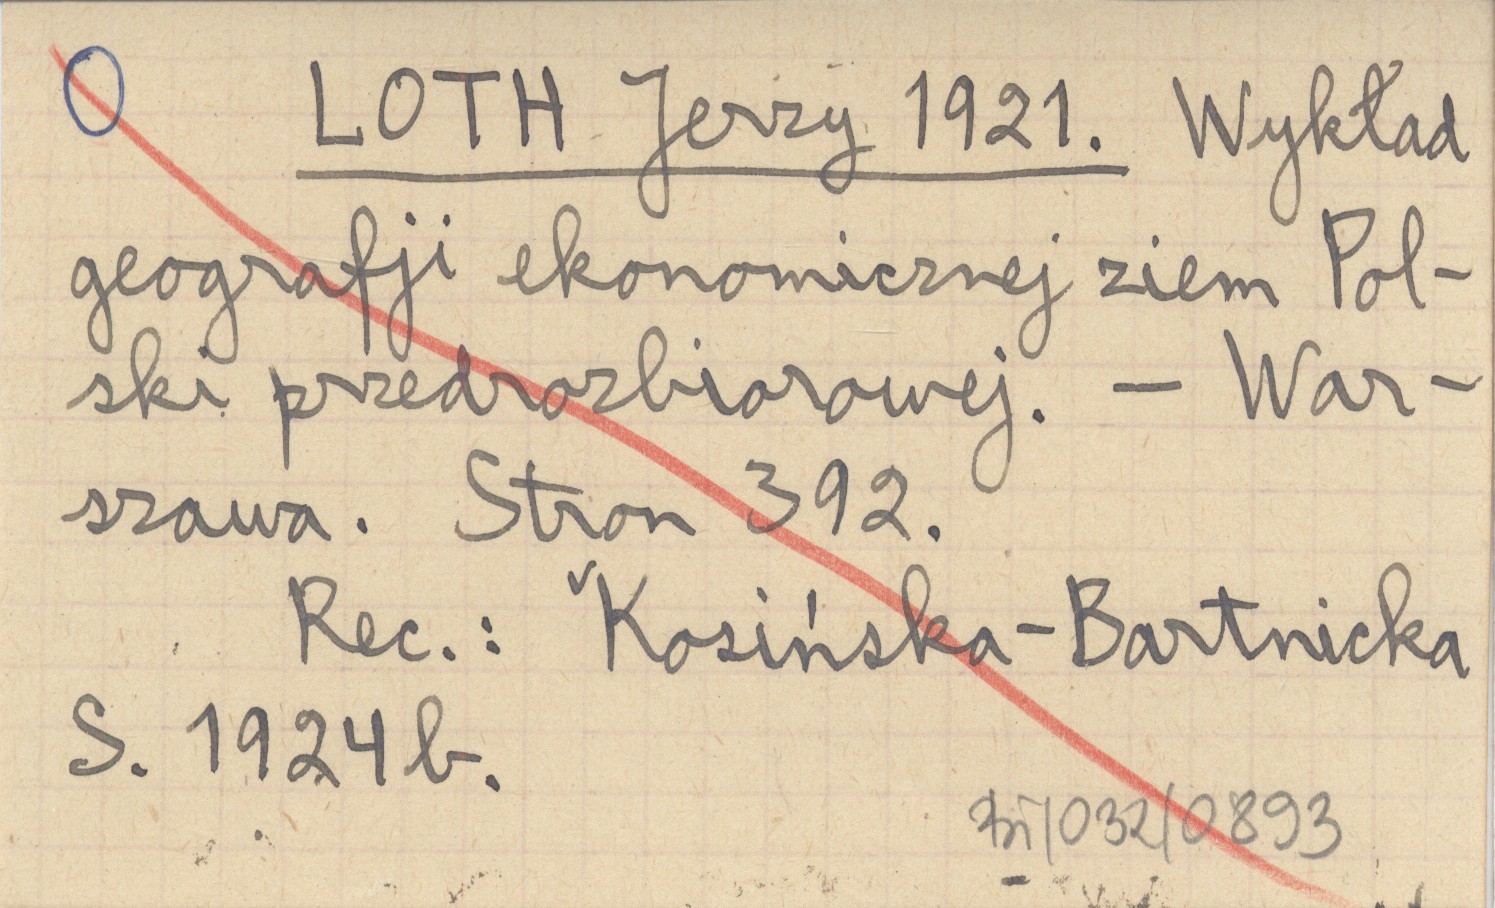 LOTH Jerzy 1921. Wykład
geografji ekonomicznej ziem Pol-
ski przedrozbiorowej. — War-
szawa. Stron 392.
Rec.: ˅Kosińska-Bartnicka
S. 1924b.
/032/0893